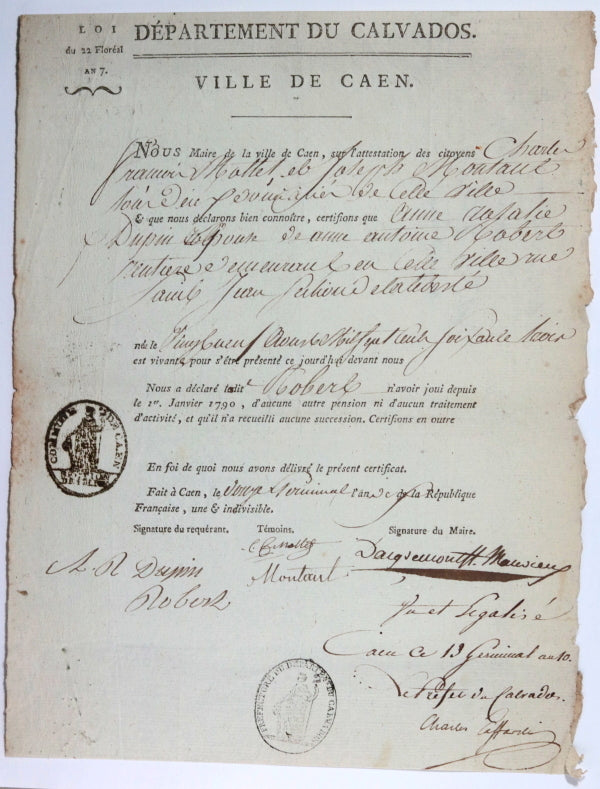 LOI
du 22 Floréal
AN 7.
DÉPARTEMENT DU CALVADOS.
VILLE DE CAEN.
NOUS Maire de la ville de Caen, sur l'attestation des citoyens Charles
françois Mollet et Joseph Montaut
de cette ville
& que nous déclarons bien connoître, certifions que Anne
Dupin Epouse de anne antoine Robert
rentiere demeurant en cette ville rue
saint Jean
née le Vingt neuf Aoust Mil sept cent soixante trois
est vivante pour s'être présenté ce jourd'hui devant nous
Nous a déclaré ladite Robert n'avoir joui depuis
le 1er. Janvier 1790, d'aucune autre pension ni d'aucun traitement
d'activité, et qu'il n'a recueilli aucune succession. Certifions en outre
COMMUNE DE CAEN
En foi de quoi nous avons délivré le présent certificat.
Fait à Caen, le Germinal l'an de la République
Française, une & indivisible.
Signature du requérant. Témoins. Signature du Maire.
C F Mollet
A. R Dupin
Montaut
Robert
Vu et Légalisé
Caen ce 13 Germinal an 10.
Le Préfet du Calvados.
Charles Caffarelli
PREFECTURE DU DEPARTEMENT DU CALVADOS